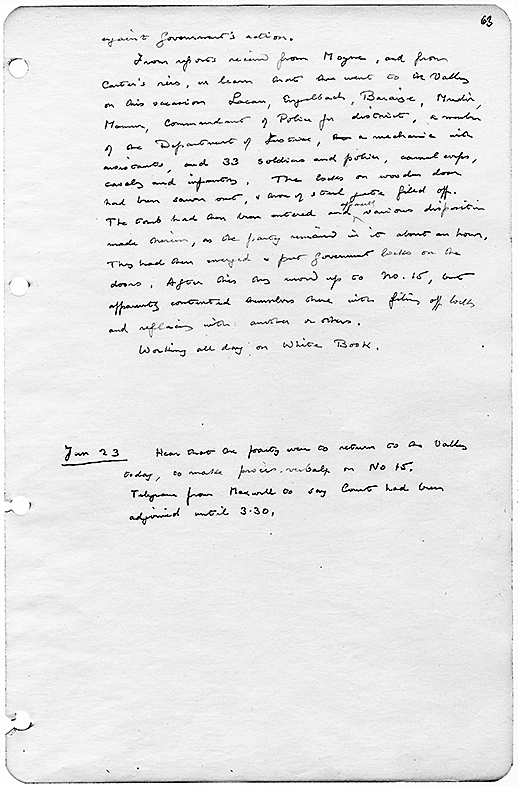 63
against Government's action.
From reports received from Mayne, and from
Carter's reis, we learn that there went to the Valley
on this occasion Lacau, Engelbach, Baraize, Mudir,
Mamur, Commandant of Police for district, a member
of the Department of Justice, a mechanic with
assistants, and 33 soldiers and police, camel corps,
cavalry and infantry. The locks on wooden door
had been sawn out, & those of steel gate filed off.
The tomb had then been entered and apparently various dispositions
made therein, as the party remained in it about an hour.
They had then emerged & put government locks on the
doors. After this they moved up to No. 15, but
apparently contented themselves there with filing off locks
and replacing with another or others.
Working all day on White Book.
Jan 23 Hear that the party were to return to the Valley
today, to make procès-verbal on No 15.
Telegram from Maxwell to say Court had been
adjourned until 3.30.